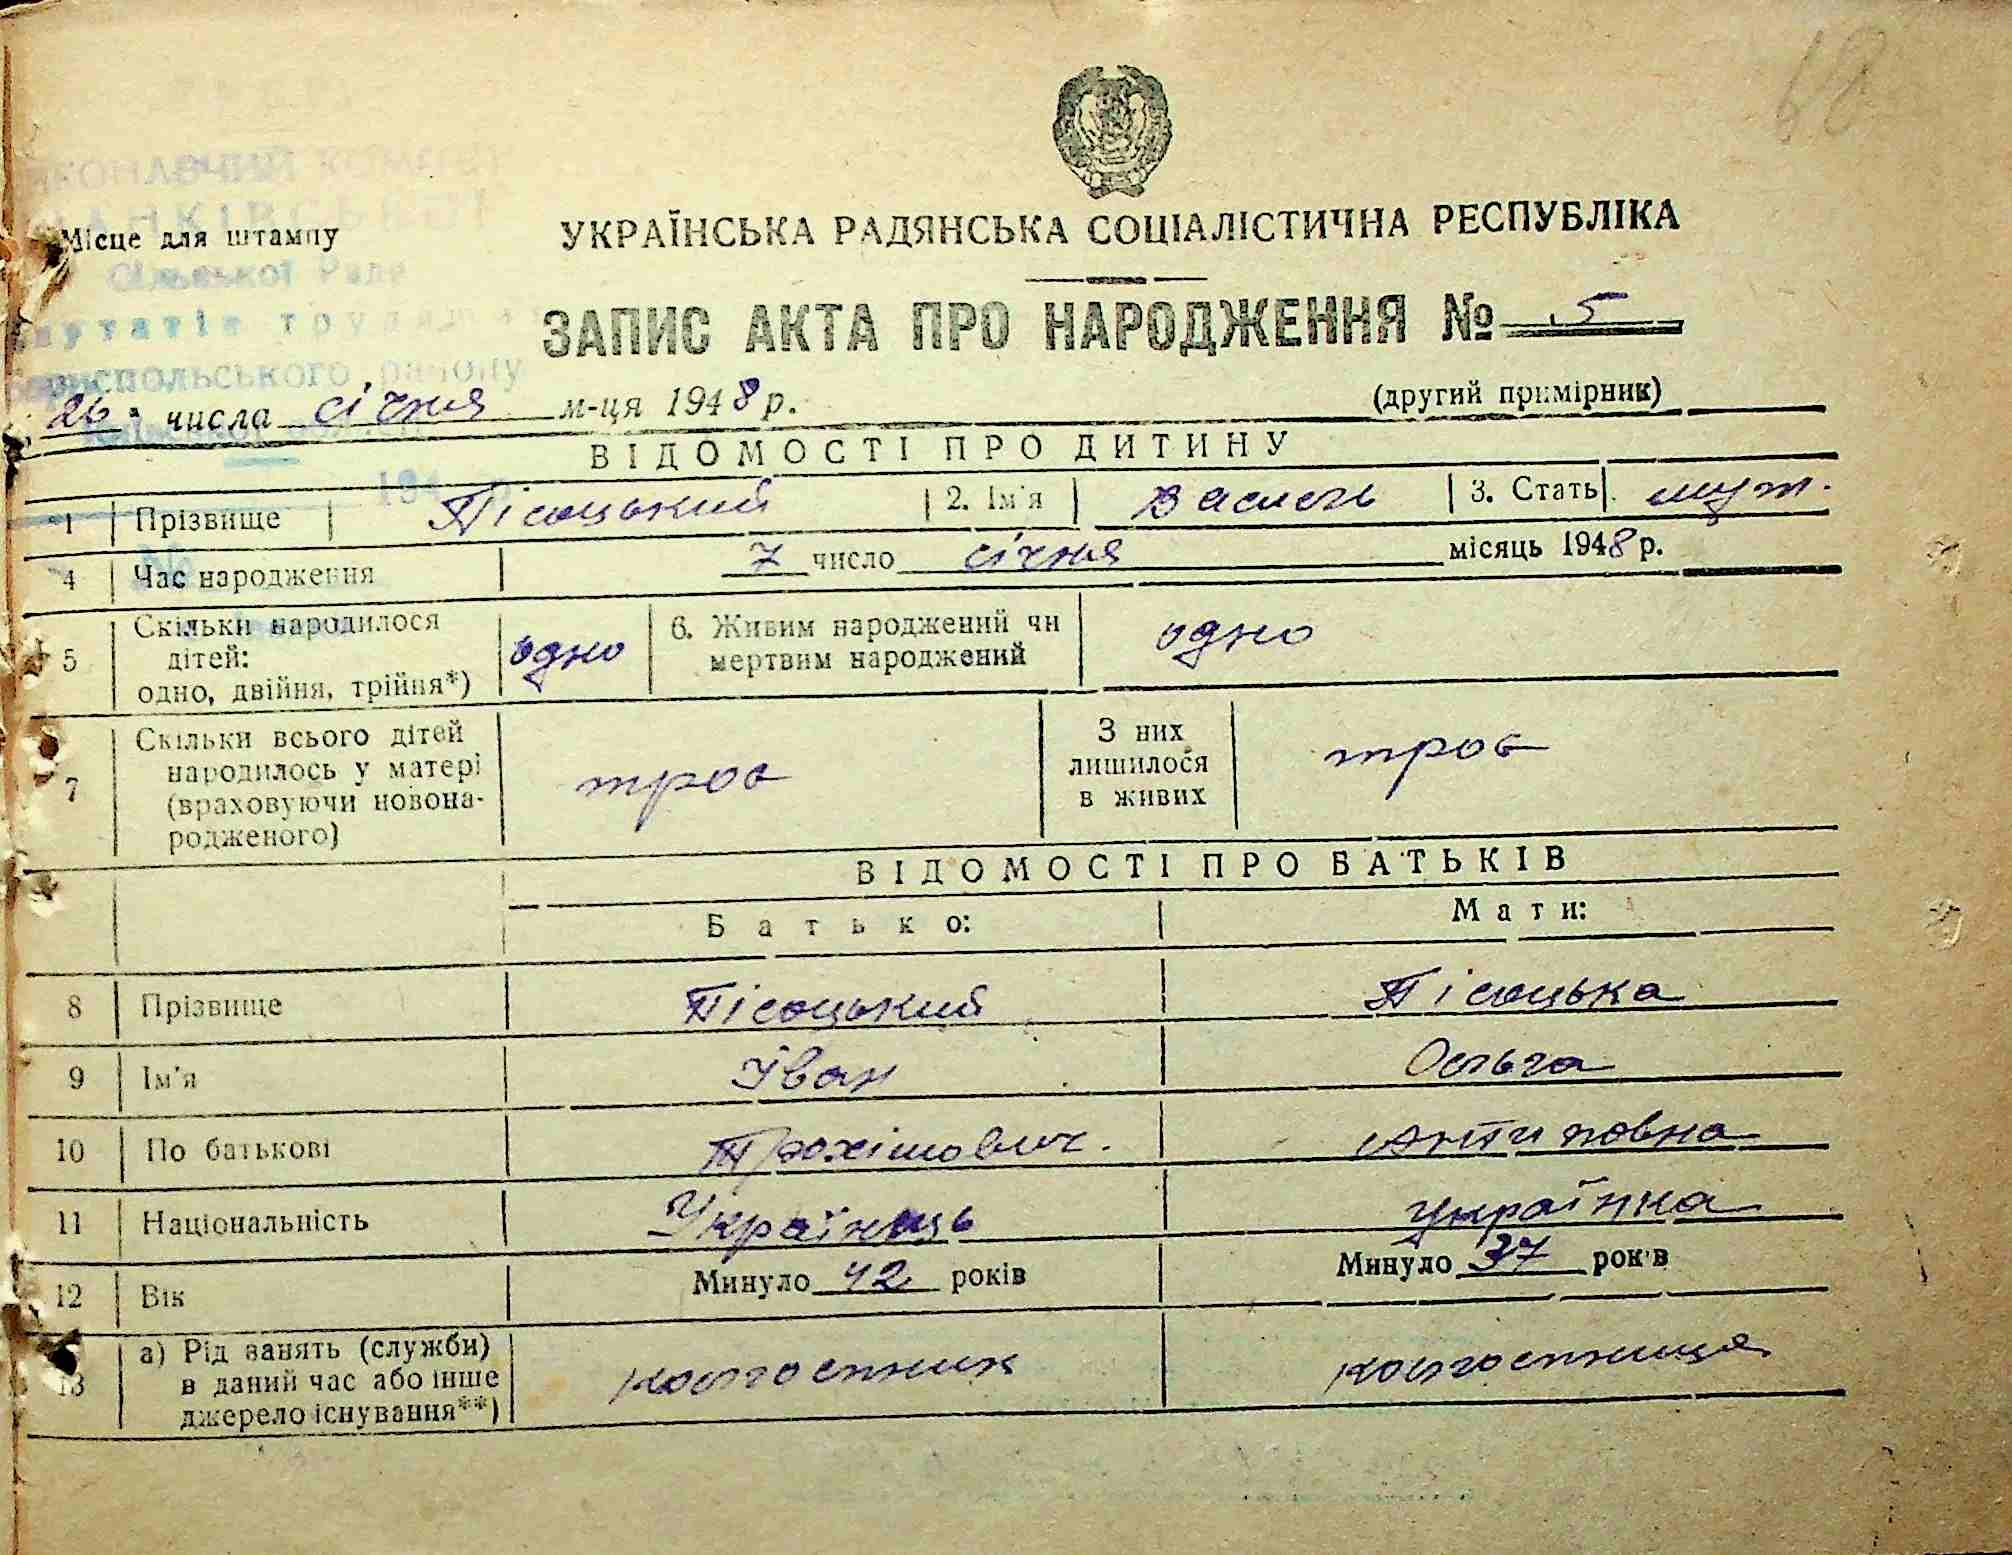 68
Місце для штампу
УКРАЇНСЬКА РАДЯНСЬКА СОЦІАЛІСТИЧНА РЕСПУБЛІКА
Сільської Ради
ЗАПИС АКТА ПРО НАРОДЖЕННЯ № 5
26 числа січня м-ця 1948 р.
(другий примірник)
ВІДОМОСТІ ПРО ДИТИНУ
1 Прізвище Пісоцький 2. Ім'я Василь 3. Стать муж.
4 Час народження 7 число січня місяць 1948 р.
5 Скільки народилося дітей: одно, двійня, трійня*) одно 6. Живим народжений чи мертвим народжений одно
7 Скільки всього дітей народилось у матері (враховуючи новонародженого) троє З них лишилося в живих троє
ВІДОМОСТІ ПРО БАТЬКІВ
Батько: Мати:
8 Прізвище Пісоцький Пісоцька
9 Ім'я Іван Ольга
10 По батькові Трохімович. Антиповна
11 Національність Українець українка
12 Вік Минуло 42 років Минуло 37 років
13 а) Рід занять (служби) в даний час або інше джерело існування**) колгоспник колгоспниця